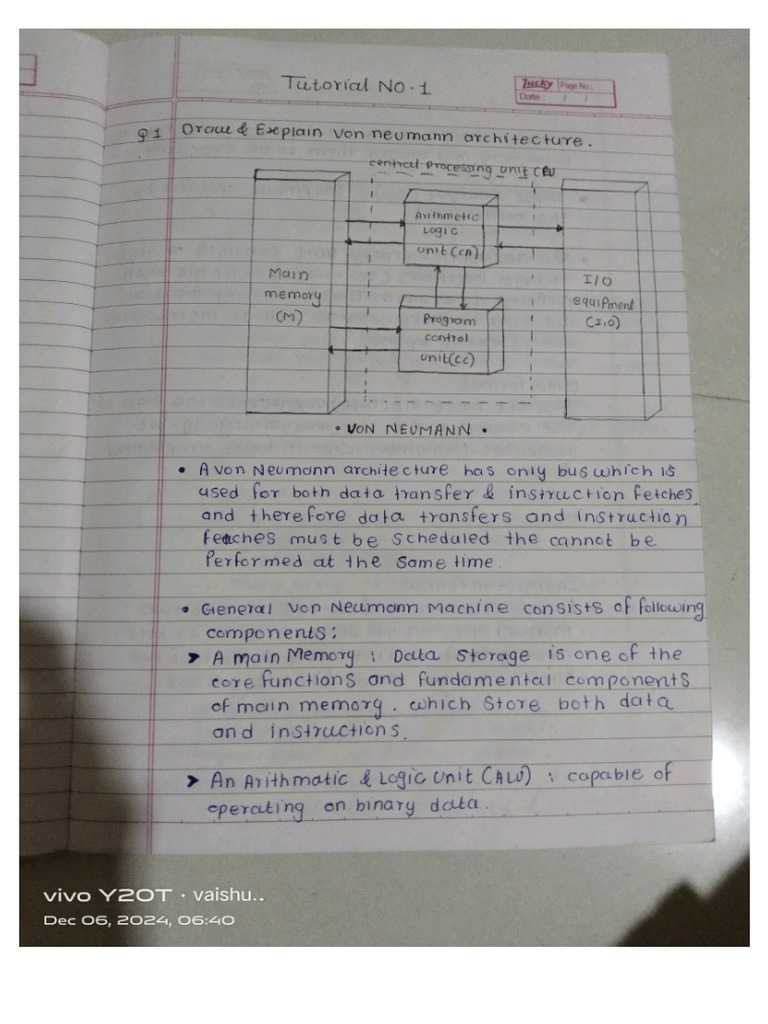 Tutorial NO.1
Lucky Page No.:
Date: / /
Q1 Draw & Exeplain von neumann architecture.
central processing unit CPU
Arithmetic
Logic
unit (CA)
Main
memory
(M)
I/O
equipment
(I,O)
Program
control
unit (CC)
• VON NEUMANN •
• A von Neumann architecture has only bus which is
used for both data transfer & instruction fetches,
and therefore data transfers and instruction
feaches must be scheduled the cannot be
Performed at the same time.
• General Von Neumann Machine consists of following
components:
➤ A main Memory : Data Storage is one of the
core functions and fundamental components
of main memory. which Store both data
and instructions.
➤ An Arithmatic & Logic Unit (ALU) : capable of
operating on binary data.
vivo Y20T · vaishu..
Dec 06, 2024, 06:40